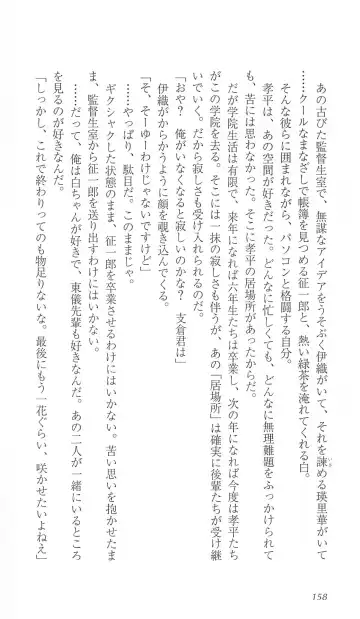 あの古びた監督生室で、無謀なアイデアをうそぶく伊織がいて、それを諫める瑛里華がいて
……クールなまなざしで帳簿を見つめる征一郎と、熱い緑茶を淹れてくれる白。
そんな彼らに囲まれながら、パソコンと格闘する自分。
孝平は、あの空間が好きだった。どんなに忙しくても、どんなに無理難題をふっかけられて
も、苦には思わなかった。そこに孝平の居場所があったからだ。
だが学院生活は有限で、来年になれば六年生たちは卒業し、次の年になれば今度は孝平たち
がこの学院を去る。そこには一抹の寂しさも伴うが、あの「居場所」は確実に後輩たちが受け継
いでいく。だから寂しさも受け入れられるのだ。
「おや？　俺がいなくなると寂しいのかな？　支倉君は」
伊織がからかうように顔を覗き込んでくる。
「そ、そーゆーわけじゃないですけど」
……やっぱり、駄目だ。このままじゃ。
ギクシャクした状態のまま、征一郎を卒業させるわけにはいかない。苦い思いを抱かせたま
ま、監督生室から征一郎を送り出すわけにはいかない。
……だって、俺は白ちゃんが好きで、東儀先輩も好きなんだ。あの二人が一緒にいるところ
を見るのが好きなんだ。
「しっかし、これで終わりってのも物足りないな。最後にもう一花ぐらい、咲かせたいよねえ」
158